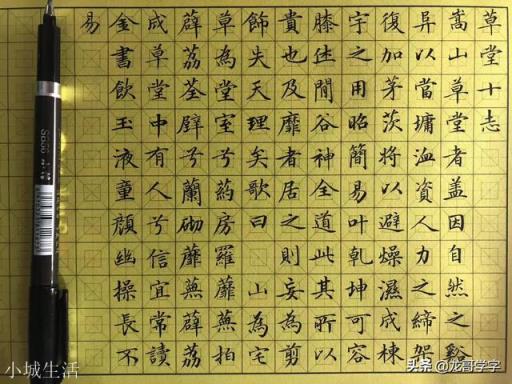 草堂十志
嵩山草堂者盖因自然之谿
以當墉洫資人力之締架
復加茅茨將以避燥濕成棟
宇之用昭簡易叶乾坤可容
膝休閒谷神全道此其所以
貴也及靡者居之則妄為剪
飾失天理矣歌曰 山為宅
草為堂室兮葯房羅蘼蕪拍
薜荔荃兮蘭砌蘼蕪薜荔
成草堂中有人兮信宜常讀
金書飲玉液童顏幽操長不
易
小城生活
头条 @龙哥学字